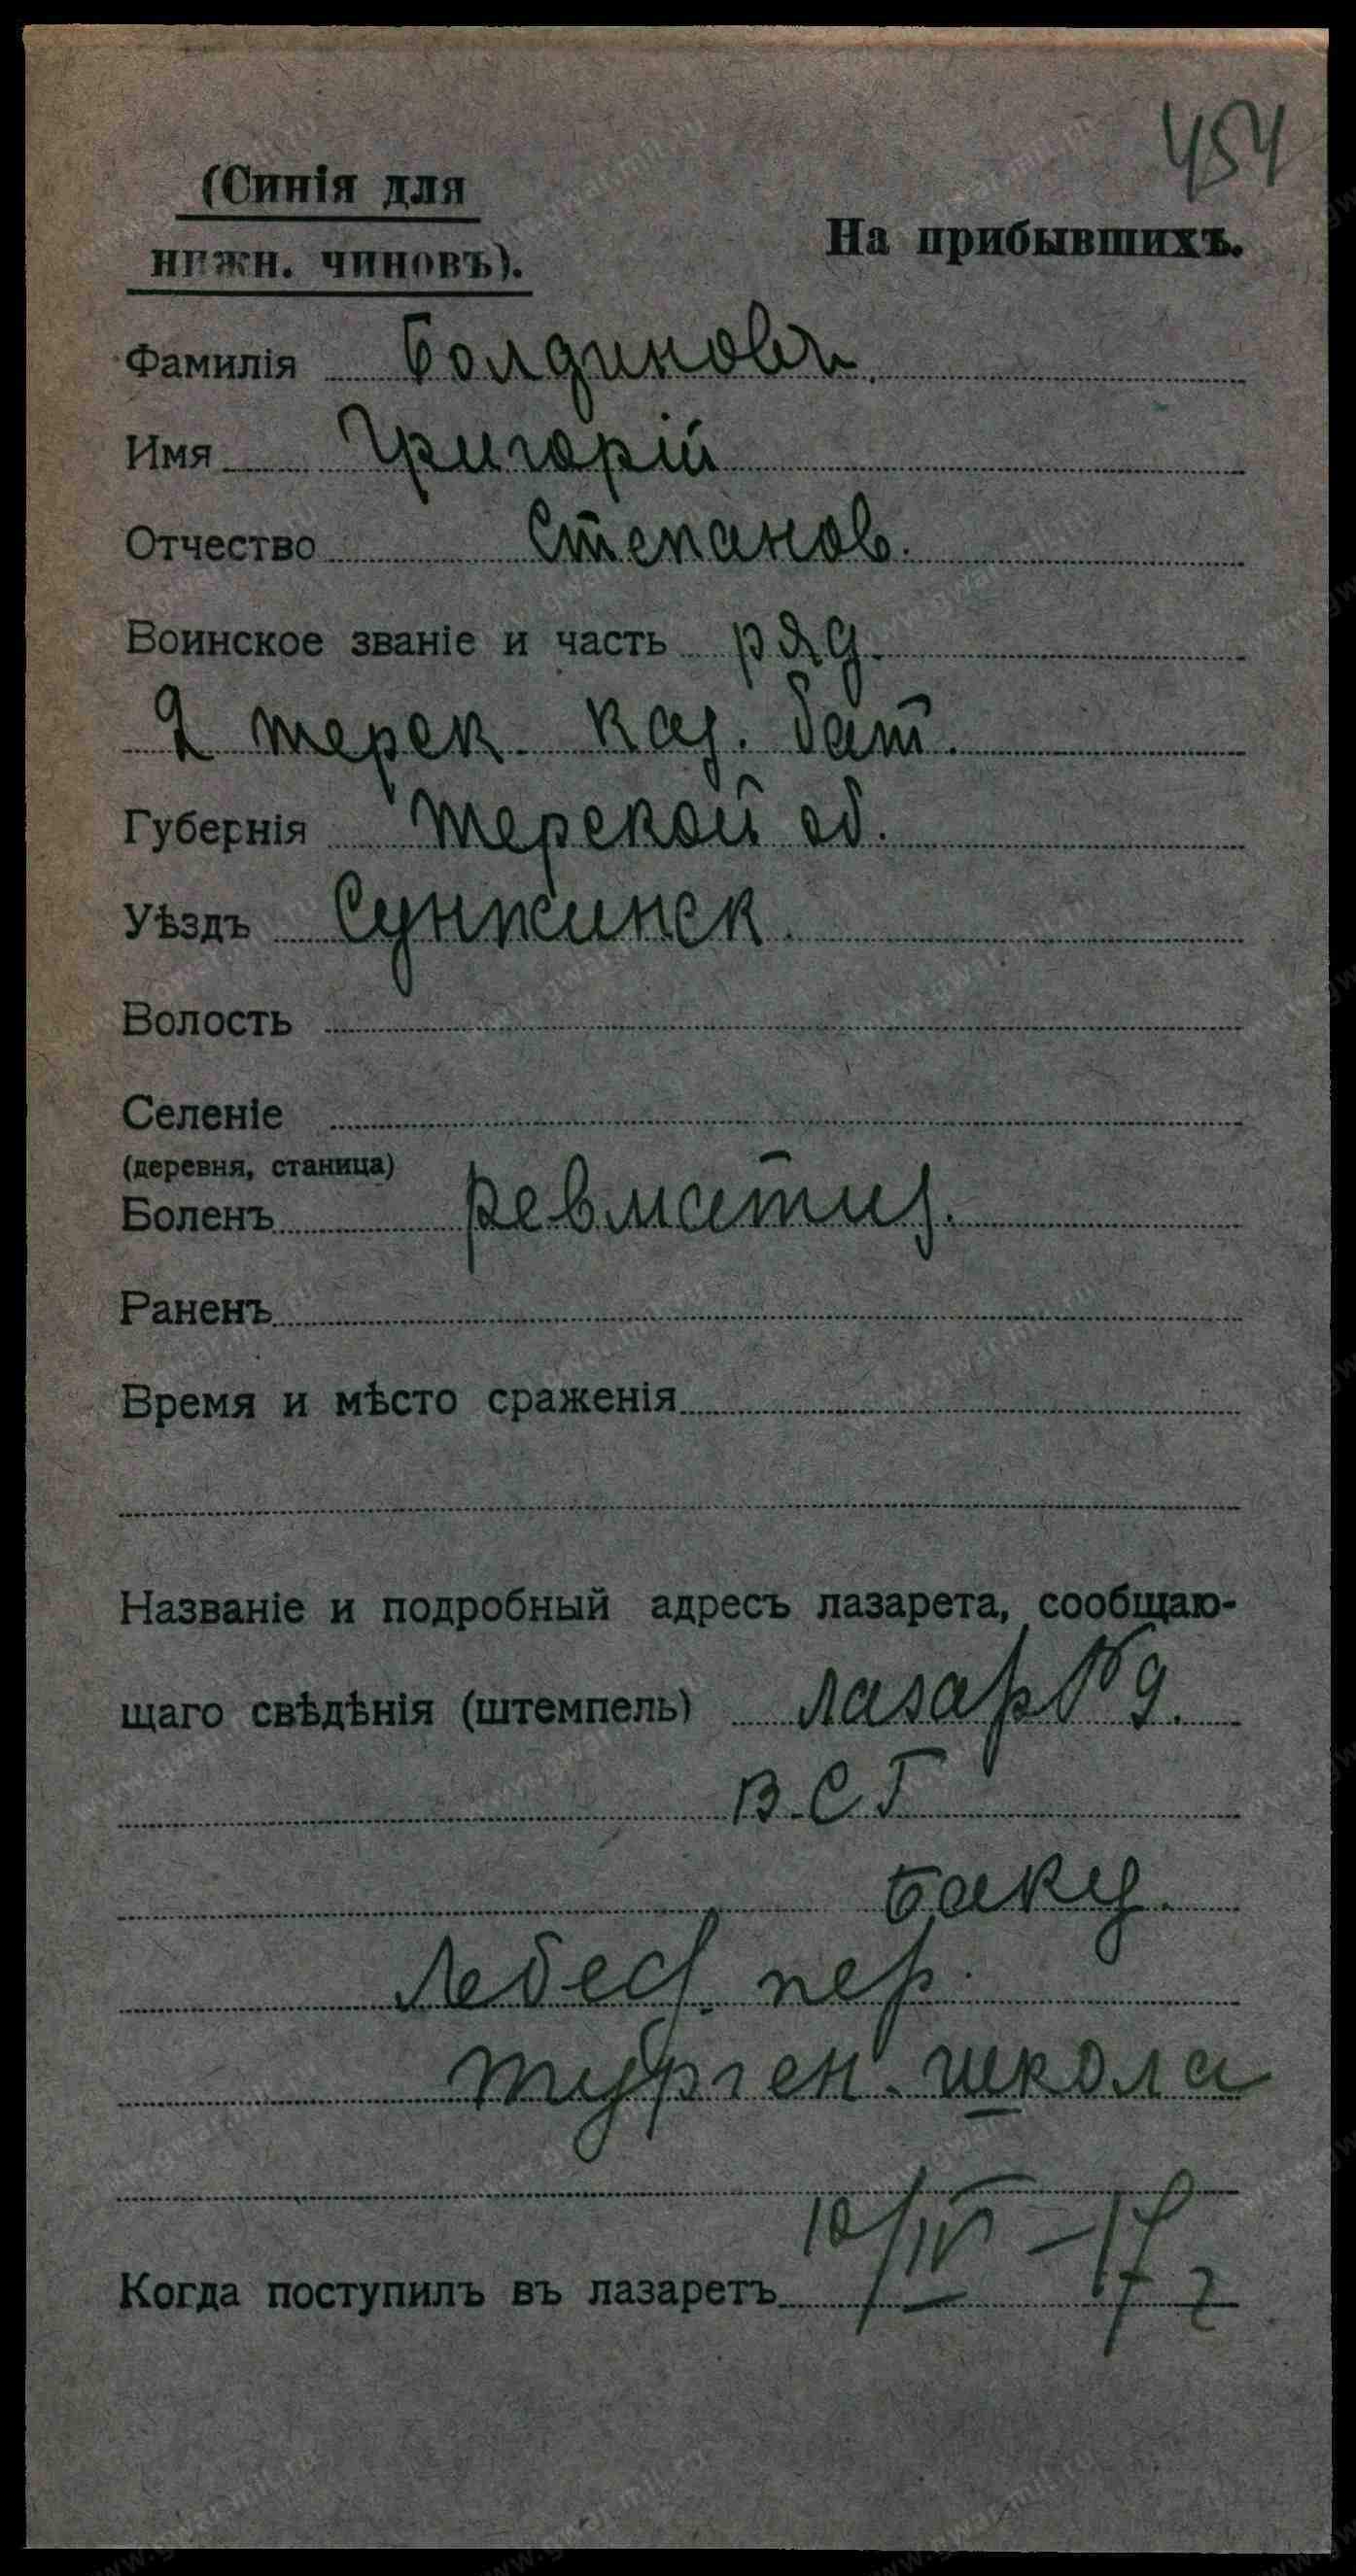 454
(Синія для
нижн. чиновъ).
На прибывшихъ.
Фамилія Болдиновъ.
Имя Григорій
Отчество Степанов.
Воинское званіе и часть ряд.
2 терск каз. бат.
Губернія Терской об.
Уѣздъ Сунженск.
Волость
Селеніе
(деревня, станица)
Боленъ ревматиз.
Раненъ
Время и мѣсто сраженія
Названіе и подробный адресъ лазарета, сообщаю-
щаго свѣдѣнія (штемпель) лазар № 9.
В.С.Г
Баку.
пер.
Турген. школа
Когда поступилъ въ лазаретъ 10/IV – 17 г